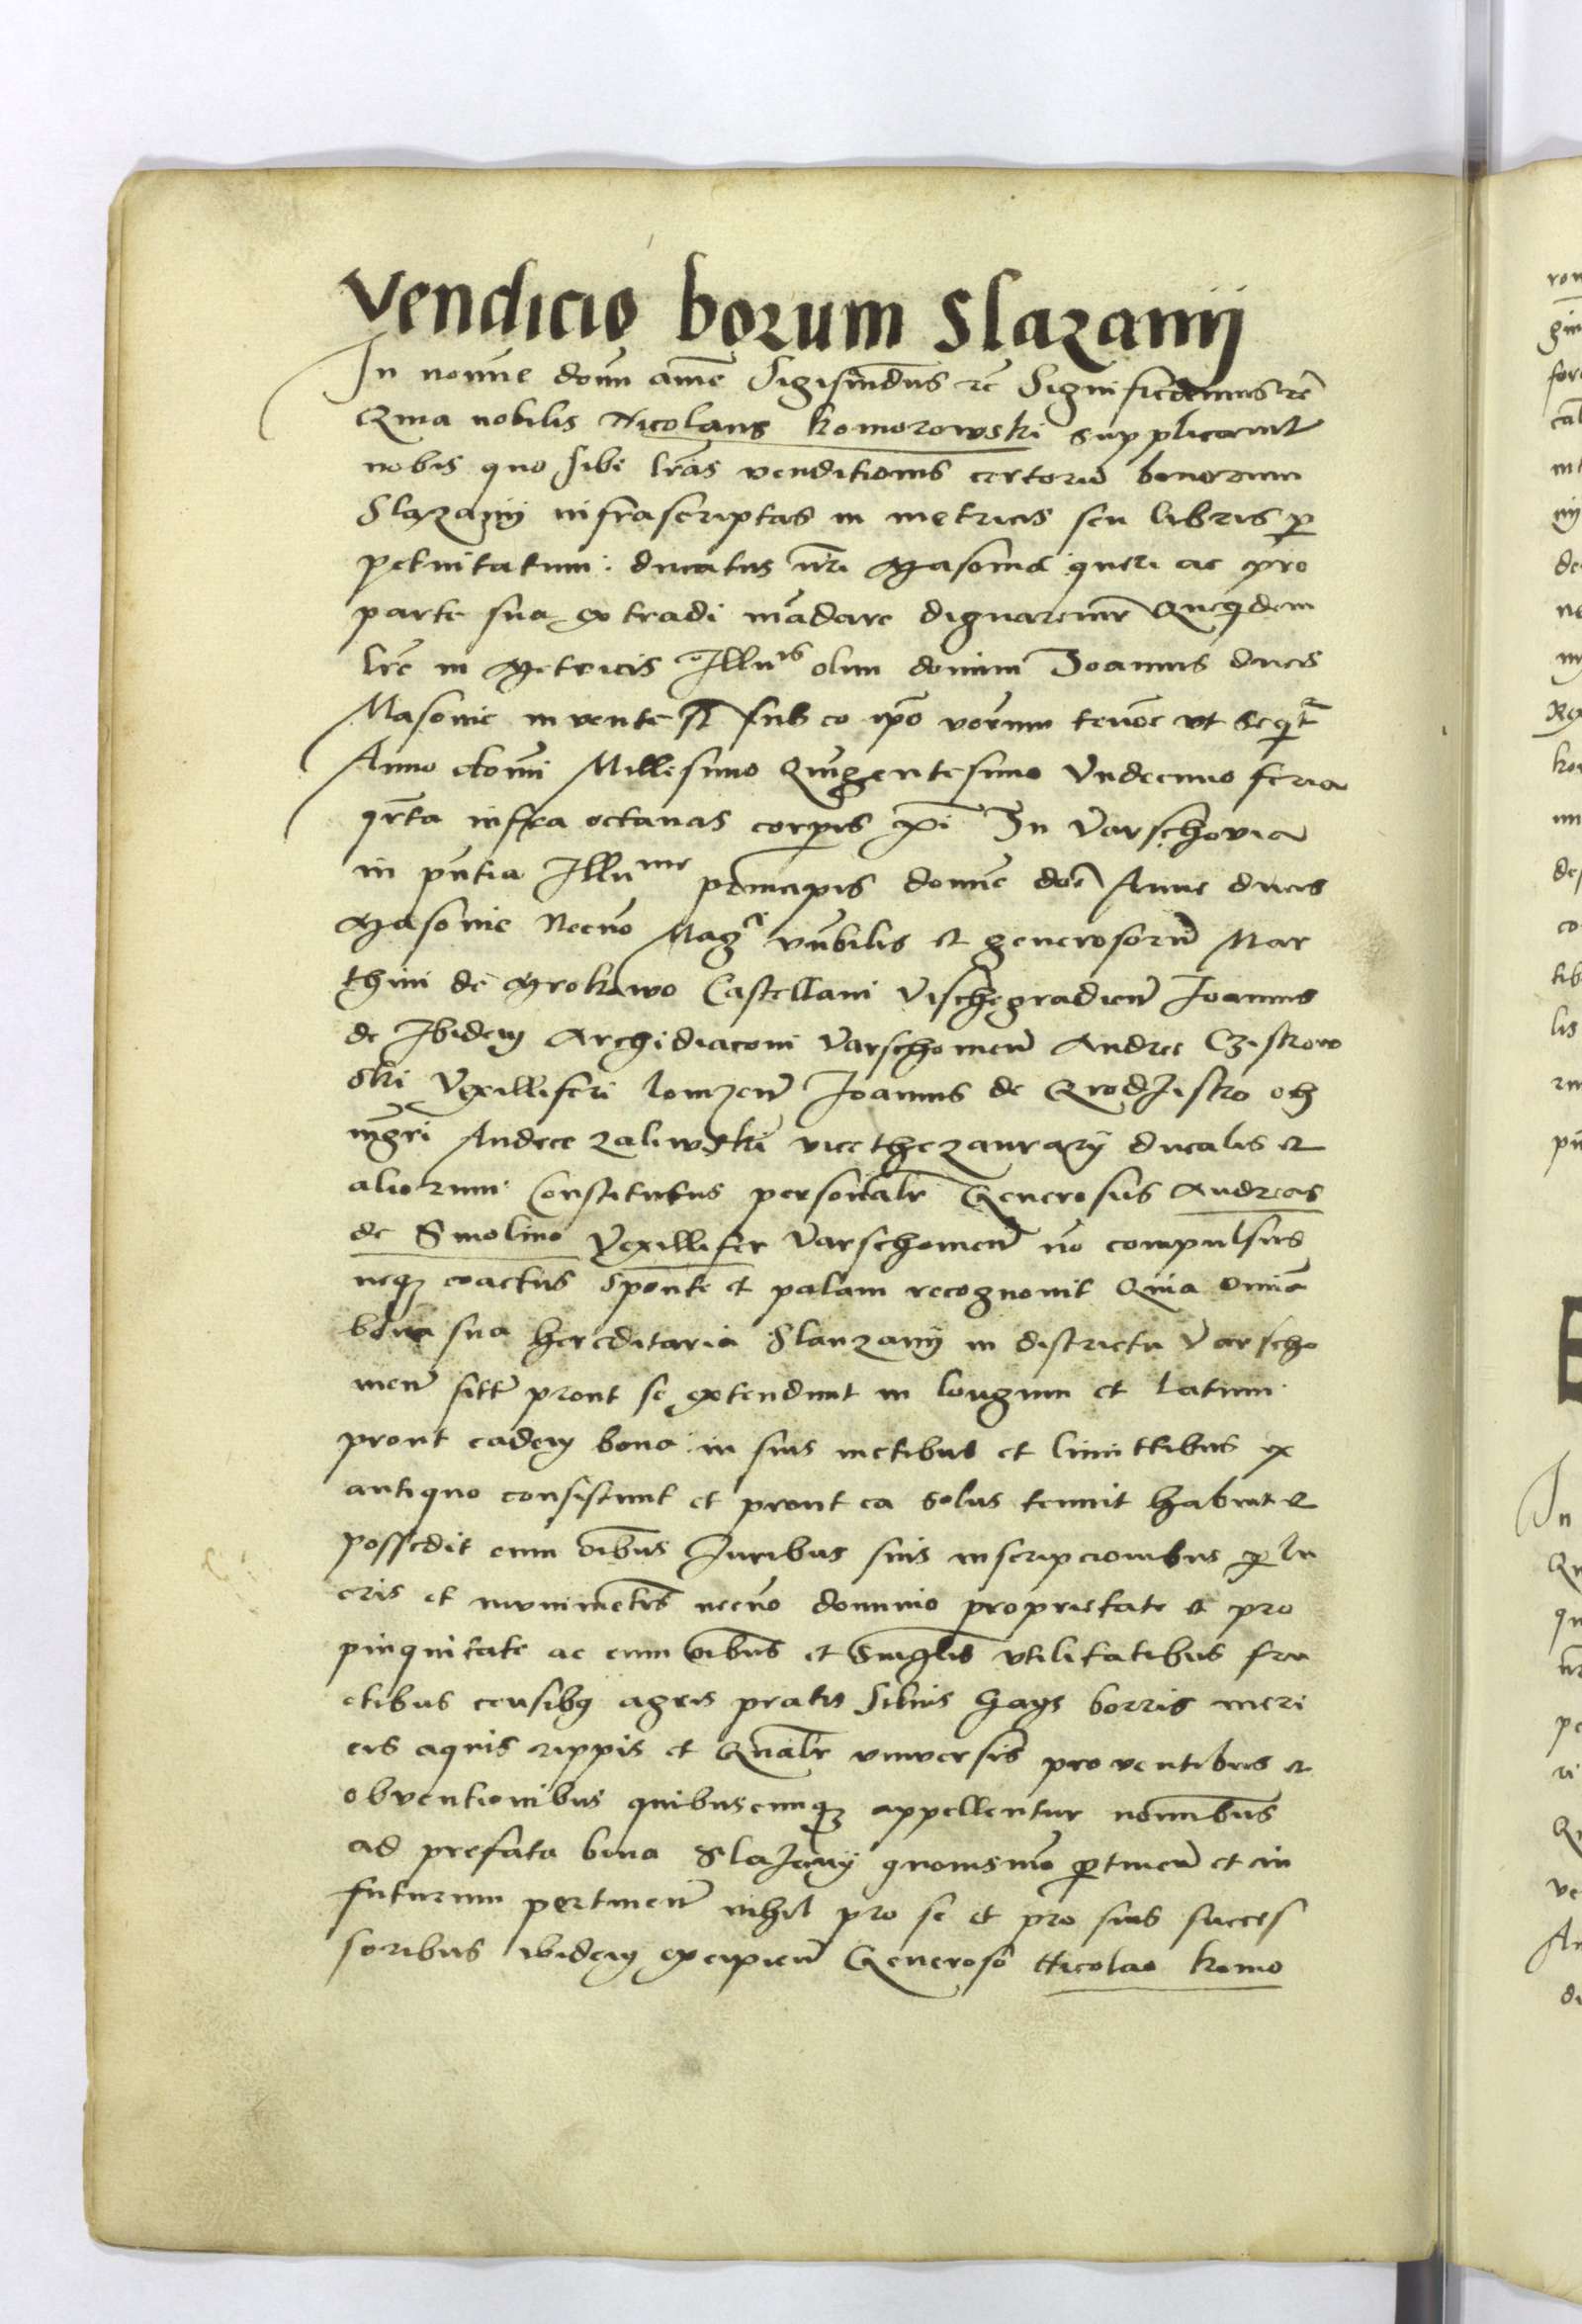 Vendicio borum Slazanij
In nomine domi ame Sigismdus rc Significamus rc
Quia nobilis Nicolaus komorowski supplicauit
nobis quo sibi lras venditionis certoru bonorum
Slazanij infrascriptas in metricis seu libris per
petuitatum ducatus nri Masouie queri ac pro
parte sua extradi madare dignaremr Quequidem
lre in Metricis Illuis olim domini Joannis ducis
Masouie invente st sub eo ipo vorum tenoe vt sequitr
Anno domi Millesimo Quigentesimo Vndecimo feria
qrta infra octauas corpis xpi In Varschovia
in pntia Illume principis domie doe Anne ducis
Masouie Necno Magci vnbilis et generosoru Mar
thini de Mrokowo Castellani Vischegradien Joannis
de Ibidem Archidiaconi Varschouien Andree Czistkow
ski Vexilliferi lomzen Joannis de Grodzistko
mgri Andree zaliwski vicethezaurarij ducalis et
aliorum Constitutus personalr Generosus Andreas
de Smolino Vexillifer Varschouien no compulsus
neq coactus sponte et palam recognouit Quia omia
bona sua hereditaria Slanzanij in districtu Varscho
uien sitt prout se extendunt in longum et latum
prout eadem bona in suis metibus et limittibus ex
antiquo consistunt et prout ea solus tenuit habuit et
possedit cum oibus Iuribus suis inscripcionibus per lu
cris et munimetis necno dominio proprietate et pro
pinquitate ac cum oibus et singlis vtilitatibus fru
ctibus censibq agris pratis siluis gays borris meri
cis aquis rippis et Gnalr vniversis proventibus et
obventionibus quibuscumqz appellentur nominibus
ad prefata bona Slazanij quouismo pertinen et in
futurum pertinen nihil pro se et pro suis succes
soribus ibidem excipien Generoso Nicolao komo